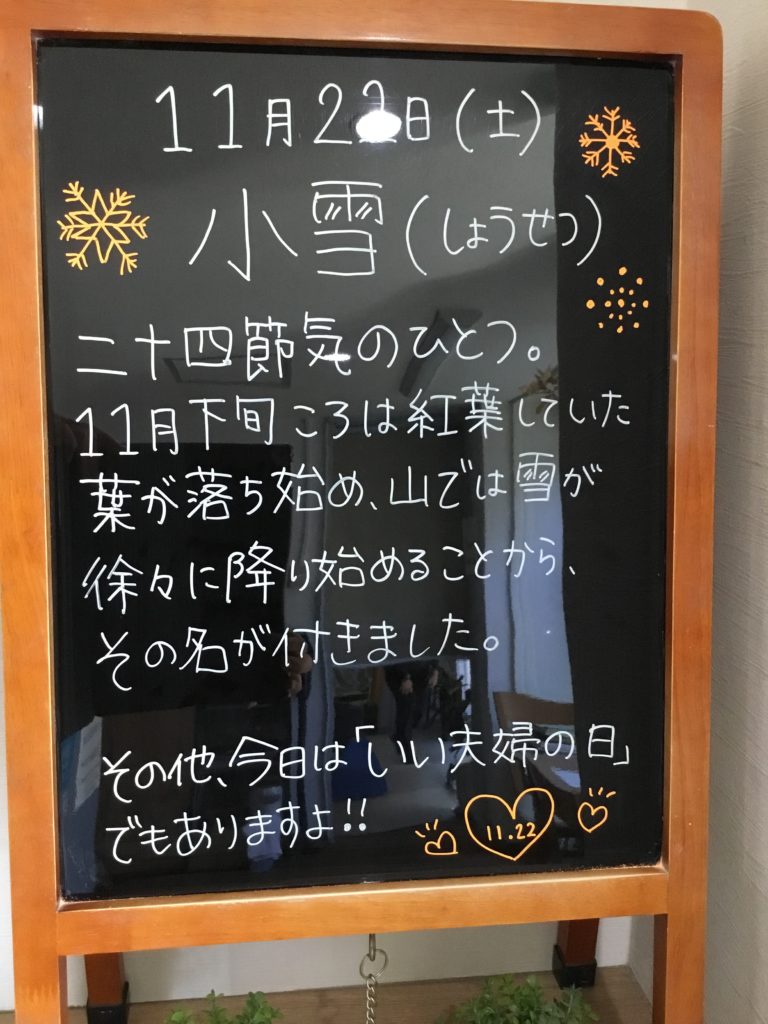 11月22日(土)
小雪(しょうせつ)
二十四節気のひとつ。
11月下旬ころは紅葉していた
葉が落ち始め、山では雪が
徐々に降り始めることから、
その名が付きました。
その他、今日は「いい夫婦の日」
でもありますよ!!
11.22